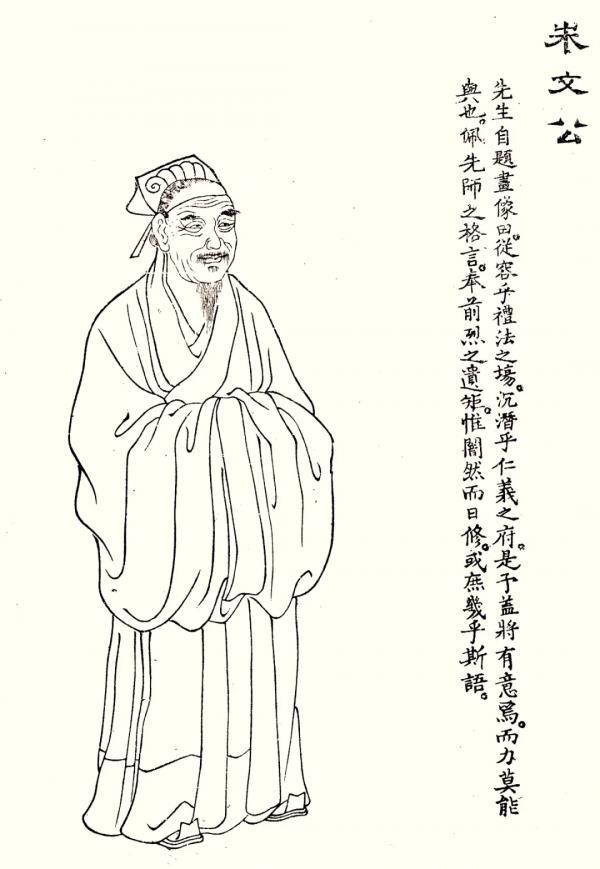 朱文公
先生自題畫像曰。從容乎禮法之場。沉潛乎仁義之府。是予蓋將有意焉。而力莫能
與也。佩先師之格言。奉前烈之遺矩。惟闇然而日修。或庶幾乎斯語。